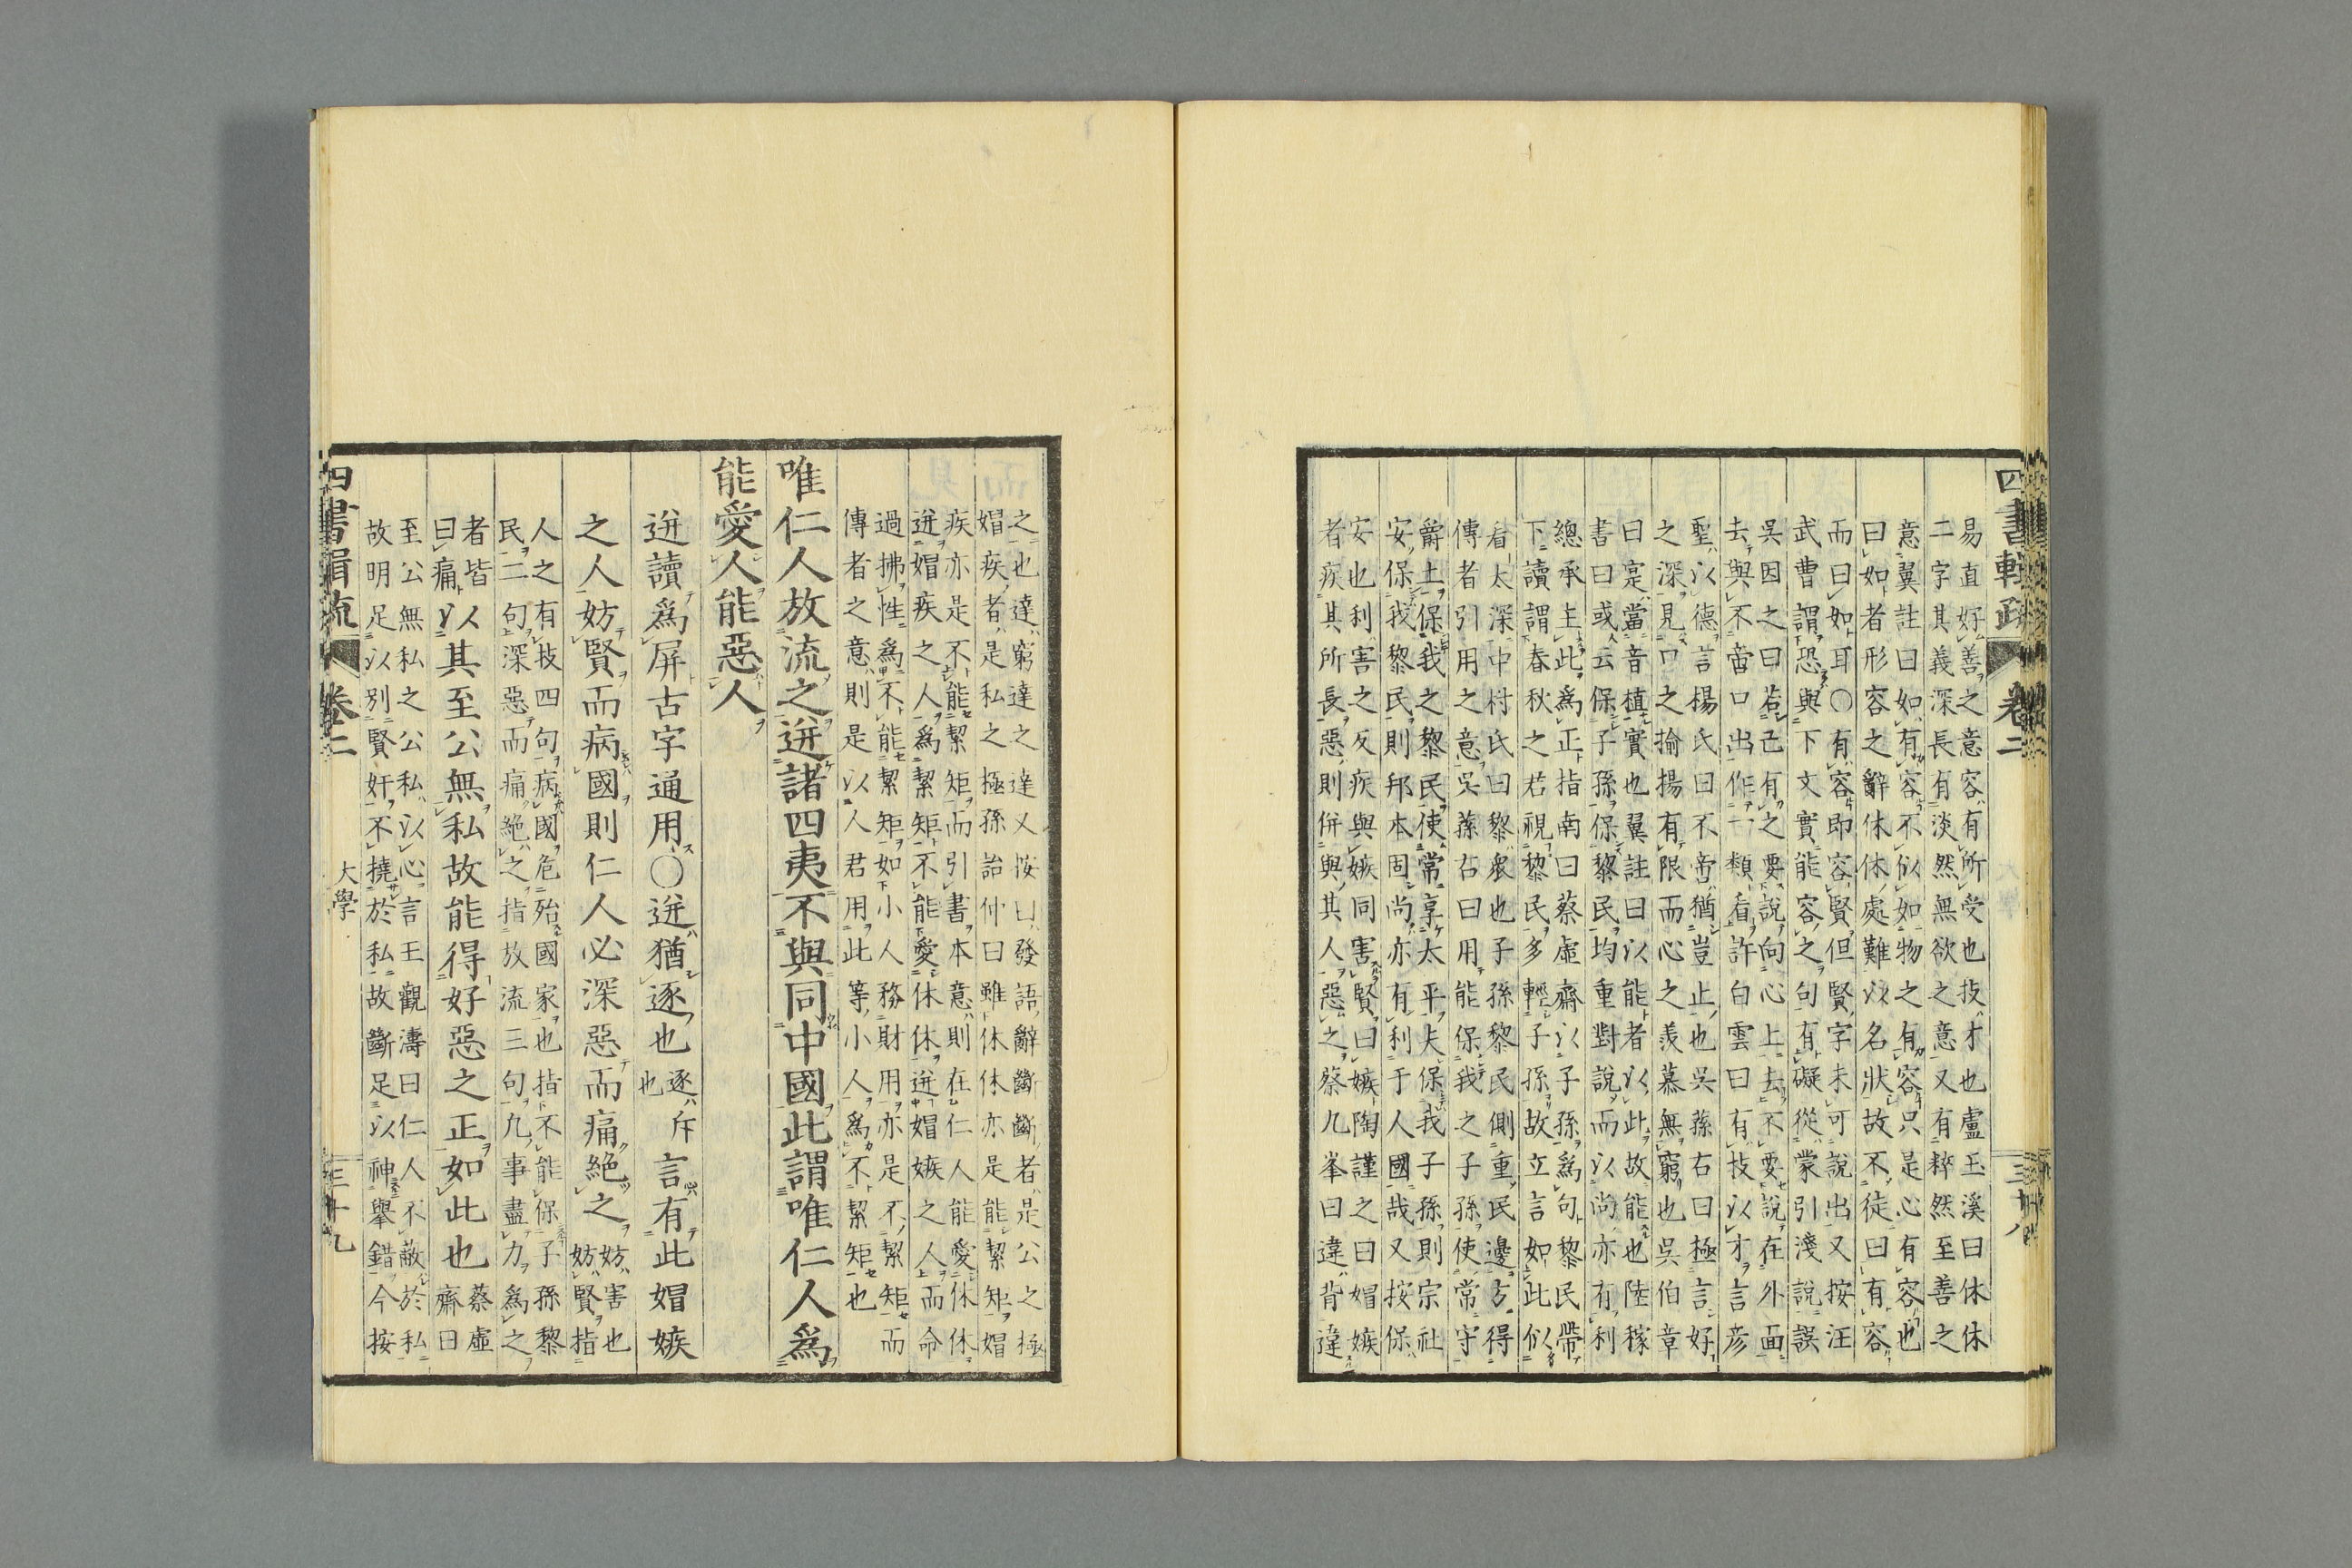 四書輯疏 卷二 三十八
易直好善之意容有所受也技才也盧玉溪曰休休
二字其義深長有淡然無欲之意又有粹然至善之
意翼註曰如有容不似如物之有容只是心有容也
曰如者形容之辭休休處難以名狀故不徒曰有容
而曰如耳○有容即容賢但賢字未可說出又按汪
武曹謂恐與下文實能容之句有礙從蒙引淺說誤
吳因之曰若己有之要說向心上去不要說在外面
去與不啻口出作一類看許白雲曰有技以才言彥
聖以德言楊氏曰不啻猶豈止也吳蓀右曰極言好
之深見口之揄揚有限而心之羨慕無窮也吳伯章
曰寔當音植實也翼註曰以能者以此故能也陸稼
書曰或云保子孫保黎民均重對說而以尚亦有利
總承主此為正指南曰蔡虛齋以子孫為句黎民帶
下讀謂春秋之君視黎民多輕子孫故立言如此似
看太深中村氏曰黎眾也子孫黎民側重民邊方得
傳者引用之意吳蓀右曰用能保我之子孫使常守
爵土保我之黎民使常享太平夫保我子孫則宗社
安保我黎民則邦本固尚亦有利于人國哉又按保
安也利害之反疾與嫉同害賢曰嫉陶謹之曰媢嫉
者疾其所長惡則併與其人惡之蔡九峯曰違背違
之也達窮達之達又按曰發語辭斷斷者是公之極
媢疾者是私之極孫詒仲曰雖休休亦是能絜矩媢
疾亦是不能絜矩而引書本意則在仁人能愛休休
迸媢疾之人為絜矩不能愛休休迸媢嫉之人而命
過拂性為不能絜矩如小人務財用亦是不絜矩而
傳者之意則是以人君用此等小人為不絜矩也
唯仁人放流之迸諸四夷不與同中國此謂唯仁人爲
能愛人能惡人
迸讀爲屏古字通用○迸猶逐也逐斥也言有此媢嫉
之人妨賢而病國則仁人必深惡而痛絶之妨害也妨賢指
人之有技四句病國危殆國家也指不能保子孫黎
民二句深惡而痛絶之指放流三句凡事盡力為之
者皆曰痛以其至公無私故能得好惡之正如此也蔡虛齋曰
至公無私之公私以心言王觀濤曰仁人不蔽於私
故明足以別賢奸不撓於私故斷足以神舉錯今按
四書輯疏 卷二 大學 三十九